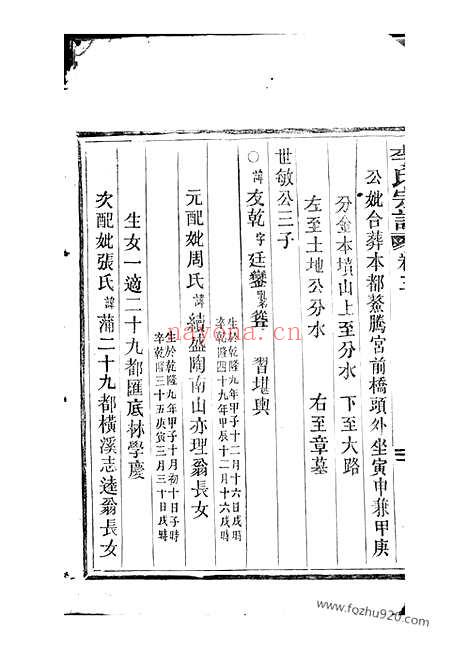 李氏宗譜 卷三
公妣合葬本都鰲騰宮前橋頭外坐寅申兼甲庚
分金本墳山上至分水 下至大路
左至土地公分水 右至章墓
世敏公三子
○諱友乾字廷鑾 習堪輿
生於乾隆九年甲子十二月十六日戌時
卒乾隆四十九年甲辰十二月十六戌時
元配妣周氏諱 盛陶南山亦理翁長女
生於乾隆九年甲子十月初十日子時
卒乾隆三十五庚寅三月三十日戌時
生女一適二十九都匯底林學慶
次配妣張氏諱蒲二十九都橫溪志逵翁長女
nayona.cn
www.fozhu920.com